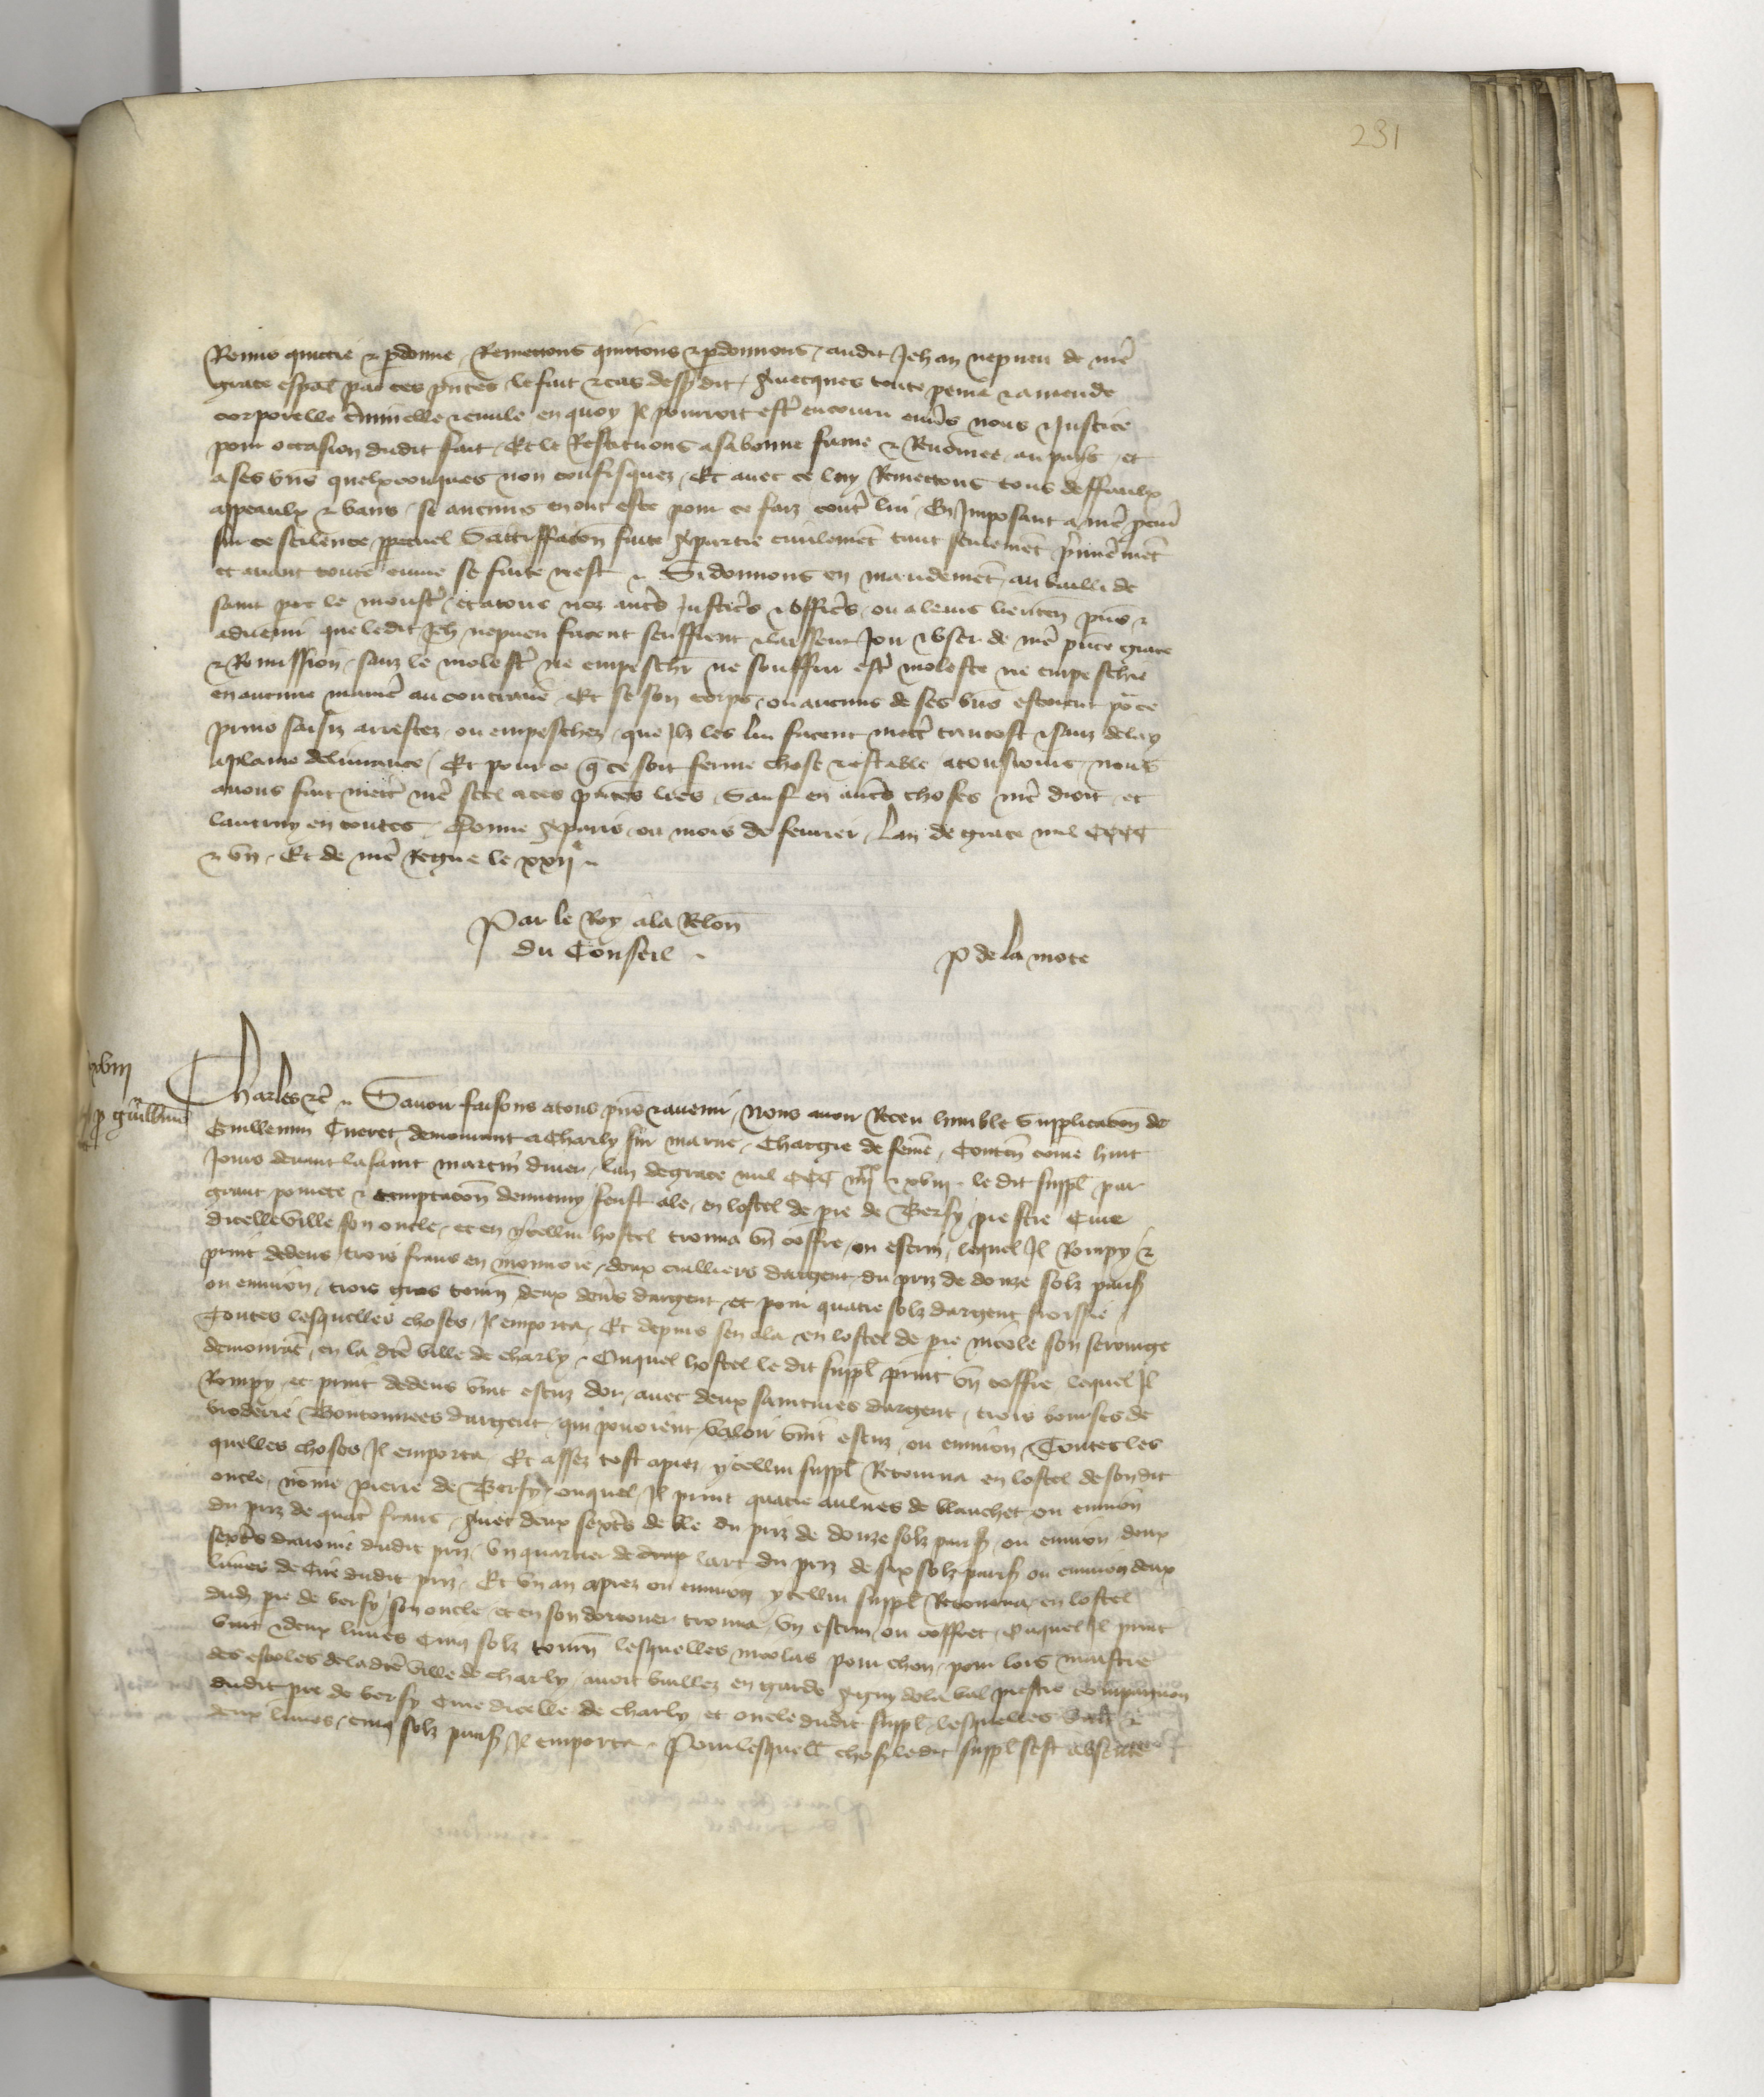 231
Remis quictié & pdonné, Remectons quictons & pdonnons, audit Jehan nepveu de nrē
grace espāl par ces pñtes le fait & cas dessꝯdit, Avecques toute peine & amende
corporelle c̃minelle & civile en quoy Il pourroit estr̃ encouru env̾s nous & Justice
pour occasion dudit fait, Et le Restituons a sa bonne fame & Renōmee, au païs, et
a ses b̃ns quelxconques non confisquez, Et avec ce luy Remectons tous deffaulx
appeaulx & bans, se aucuns en ont esté pour ce faiz contr̃ lui, En Imposant a nrē pcur̃
sur ce scilence ppetuel Sattiffacōn faite A partie civilemēt tant seulemēt p̃mier̃mēt
et avant toute euvre se faite n'est, Si donnons en mandemēt au bailli de
saint pre le moustr̃, et a tous noz autr̃s Justic̃rs & offic̃rs, ou a leurs lieuten p̃ns &
advenir que ledit Jeh nepveu facent seuffrent & laissent Joir & user de nrē p̃nte grace
& Remission, sanz le molestr̃ ne empeschr̃ ne souffrir estr̃ molesté ne empeschié
en aucune manier̃ au contraire, Et se son corps, ou aucuns de ses b̃ns estoient po' ce
prins saisiz arrestez, ou empeschez, que Ilz les lui facent mectr̃ tantost & sanz delay
a plaine delivrance, Et pour ce q̃ ce soit ferme chose & estable a tousiours, nous
avons fait mectr̃ nrē seel a ces p̃ntes lrēs, Sauf en autr̃s choses nrē droit, et
l'autruy en toutes, Donné A paris, ou mois de fevrier, L'an de grace mil CCCC
& un, Et de nrē Regne le xxijᵉ
Par le Roy a la Rel̃on
du Conseil
P de la mote
xviij
p guill̃min
Charles &c̃ Savoir faisons a tous p̃ns & avenir, Nous avoir Receu humble Supplicacōn de
Guillemin Cueret, demourant a Charly sur marne, Chargié de fem̃e, Conten̄ cōme huit
Jours devant la saint martin d'iver, l'an de grace mil CCC iiijˣˣ & xviij, le dit suppl̃ par
grant povreté & temptacōn d'ennemy feust alé, en l'ostel de pre de Versy prestre Curé
d'icelle ville son oncle, et en ycellui hostel trouva un coffre, ou escrin, lequel Il Rompy &
print dedens trois frans en monnoie, deux cuilliers d'argent, du pris de douze solz paris
ou environ, trois gros tourn̄ deux den̾s d'argent, et pour quatre solz d'argent froissié
Toutes lesquelles choses, Il emporta, Et depuis s'en ala en l'ostel de pre nicole son serourge
demourāt, en la dcē ville de Charly, Ouquel hostel le dit suppl̃ print un coffre lequel Il
Rompy, et print dedens vint escuz d'or, avec deux saintures d'argent, trois bourses de
broderie Boutonnees d'argent, qui povoient valoir vint escuz, ou environ, Toutes les
quelles choses, Il emporta, Et assez tost aprez, ycellui suppl̃ Retourna en l'ostel de son dit
oncle, nōmé pierre de Versy, ouquel Il print quatre aulnes de blanchet ou environ
du pris de quatr̃ frans, Avec deux sextr̃s de blé du pris de douze solz paris, ou environ deux
sextr̃s d'avoine dudit pris, un quartier de lart du pris de six solz paris ou environ deux
livres de Cire dudit pris, Et un an aprez ou environ ycellui suppl̃ Retourna, en l'ostel
dud pre de versy son oncle, et en son dortouer trouva un escrin, ou coffret, Ouquel Il print
vint & deux livres Cinq solz tourn̄ lesquelles nicolas pour lors maistre
des escoles de la dcē ville de Charly, avoit baillez en garde A guy de la val prestre compaignon
dudit pre de versy Curé d'icelle de Charly, et oncle dudit suppl̃, lesquelles vint &
deux livres, cinq solz paris Il emporta, Pour lesquell̃ choses ledit suppl̃ s'est absenté